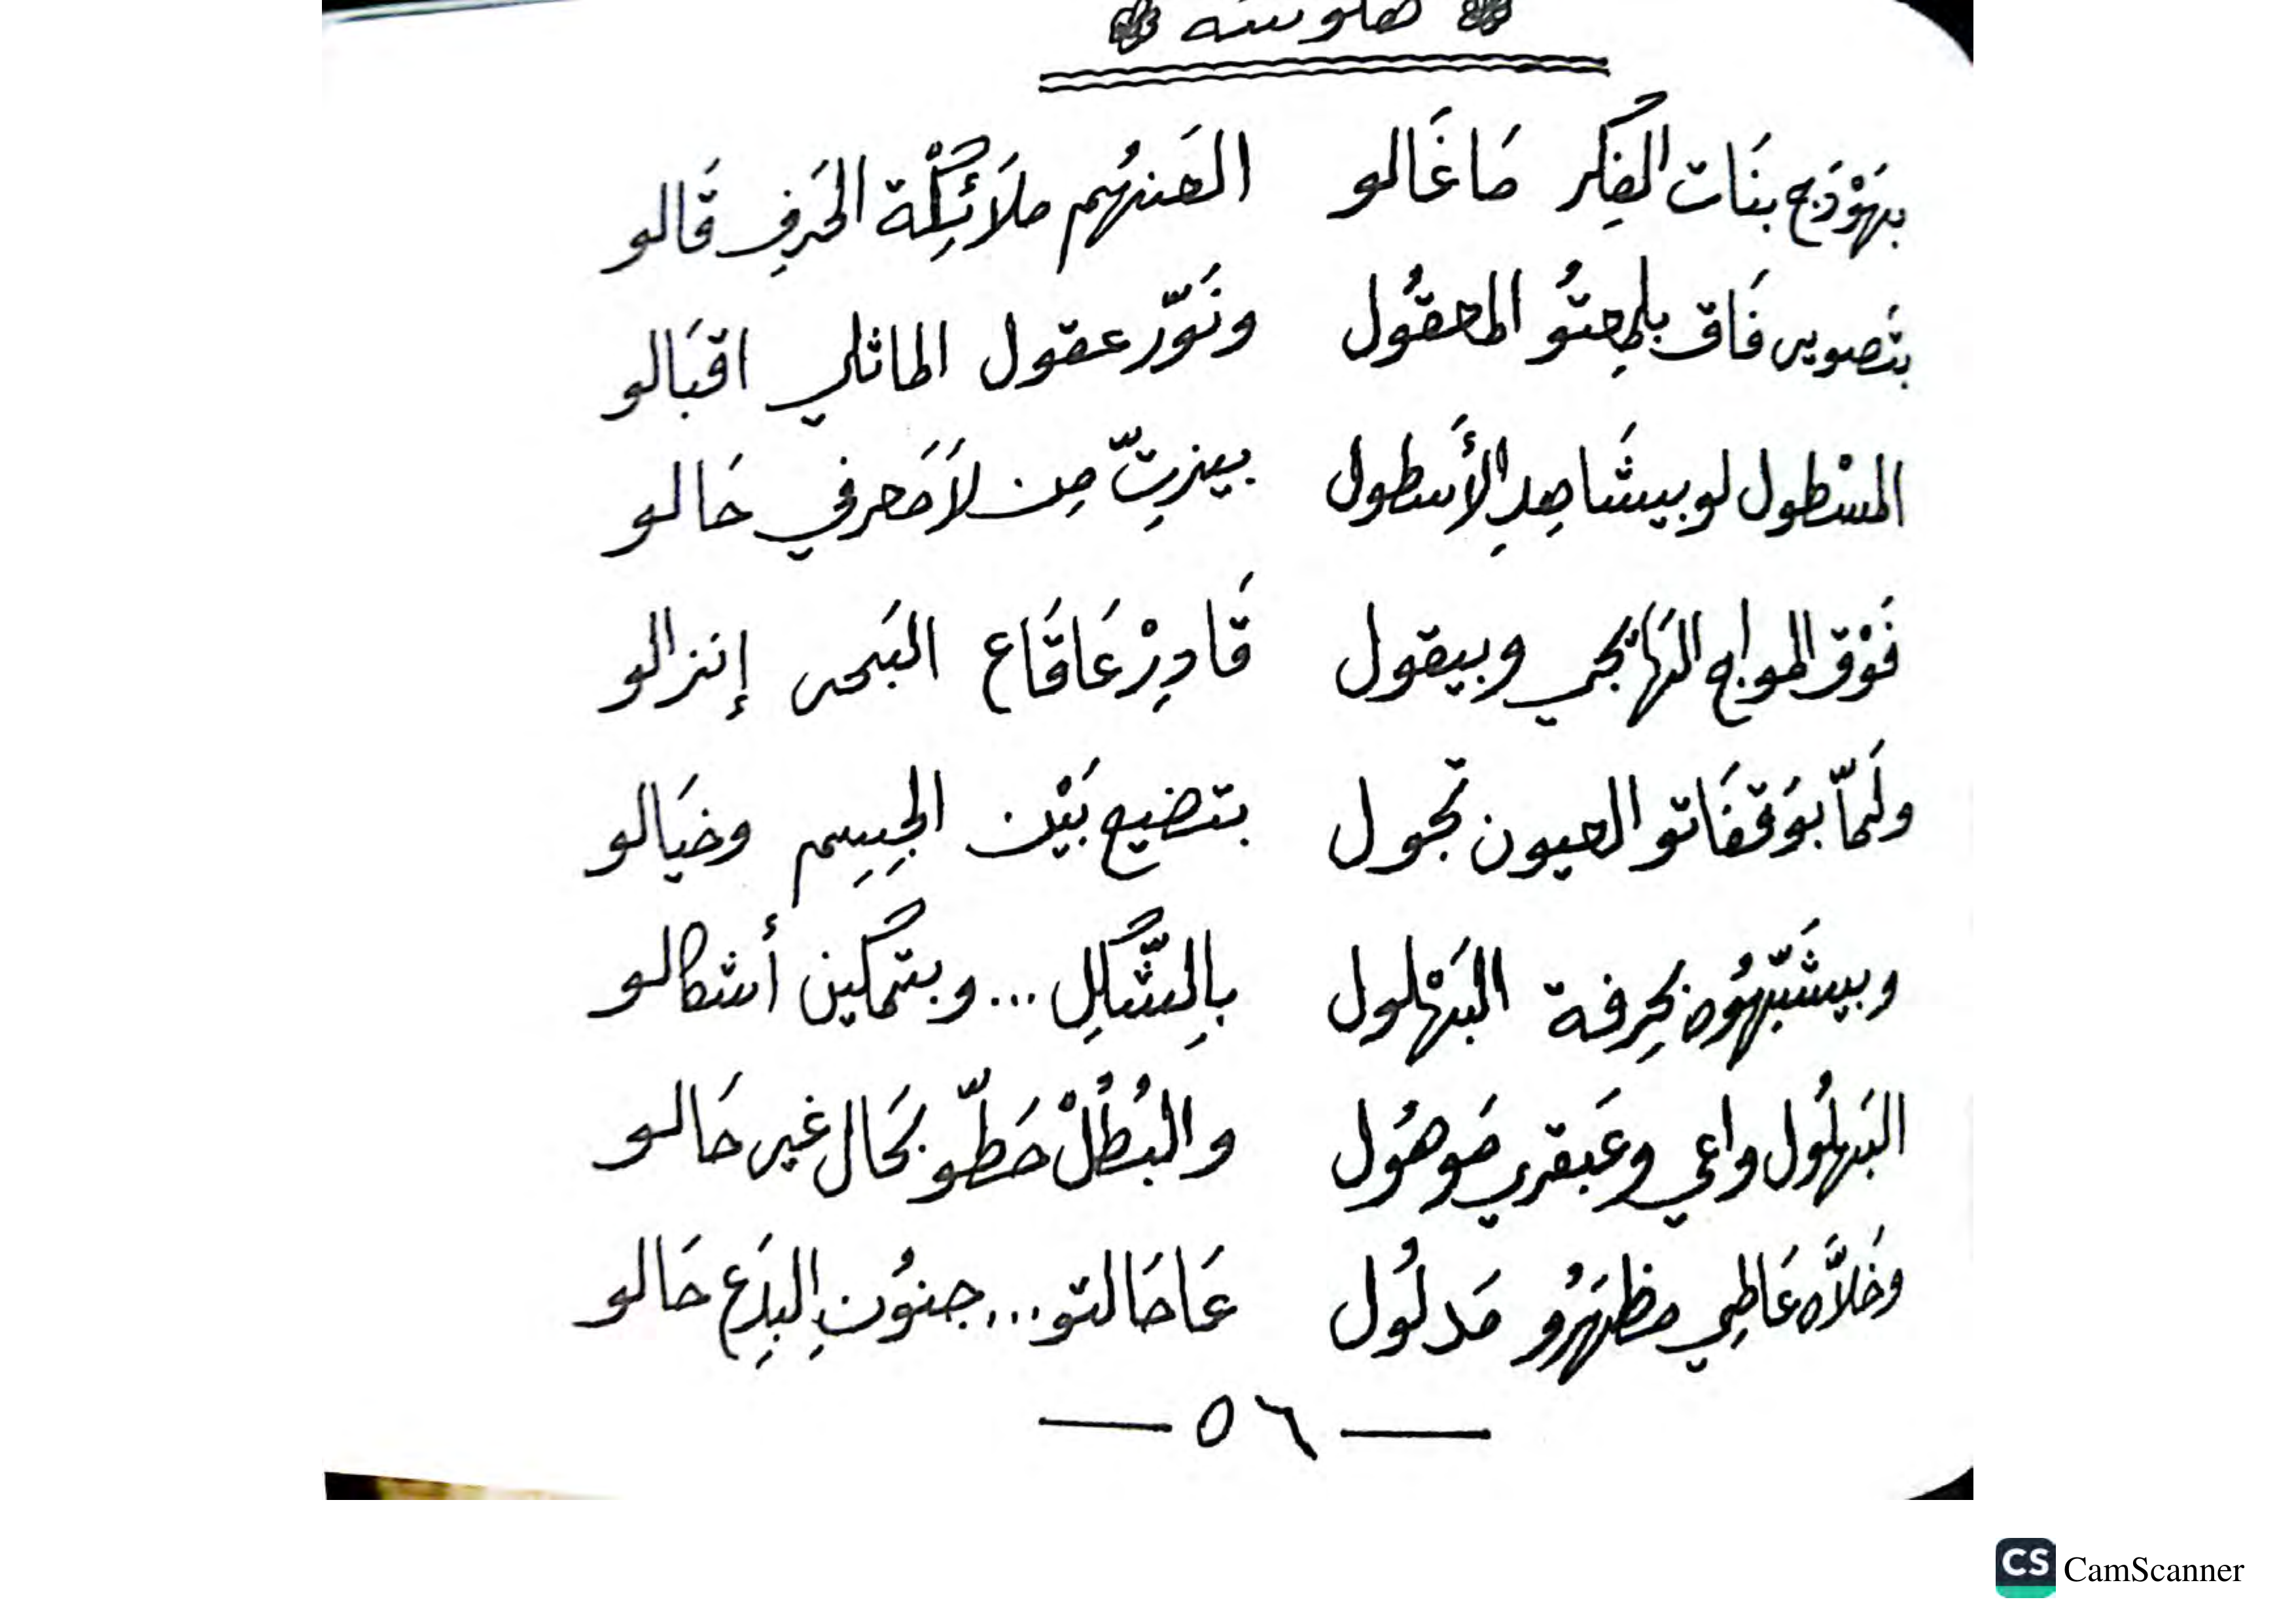 هلوسه
بهَوْدَج بنَات الفِكر مَا غَالو الهَنهُم ملاَئِكْة الحَرفِ قَالو
بتَصوير فَاق بلمِعتُو المعقُول ونَوّر عقول الماثلي اقبَالو
المسْطول لو بيشَاهِدِ الأَسطول بينزِتّ مِن لاَمَعرفي حَالو
فَوْق المواج الهَايجي وبيقول قَادِرْ عَاقَاع البَحر إنزالو
ولَمّا بوَقفَاتو العيون تجول بتضيع بَيْن الجِسِم وخيَالو
وبيشَبّهُوه بحِرفة البَهْلول بِالشَّكلِ ... وبتمكين أشكالو
البَهلُول واعي وعَبقري مَوهُول والبُطُلْ حَطّو بحَال غير حَالو
وخَلاَّه عَاطِي مظهَرُو مَدلُول عَاحَالتو ... جنُونِ البِدَع حَالو
— ٥٦ —
CS CamScanner